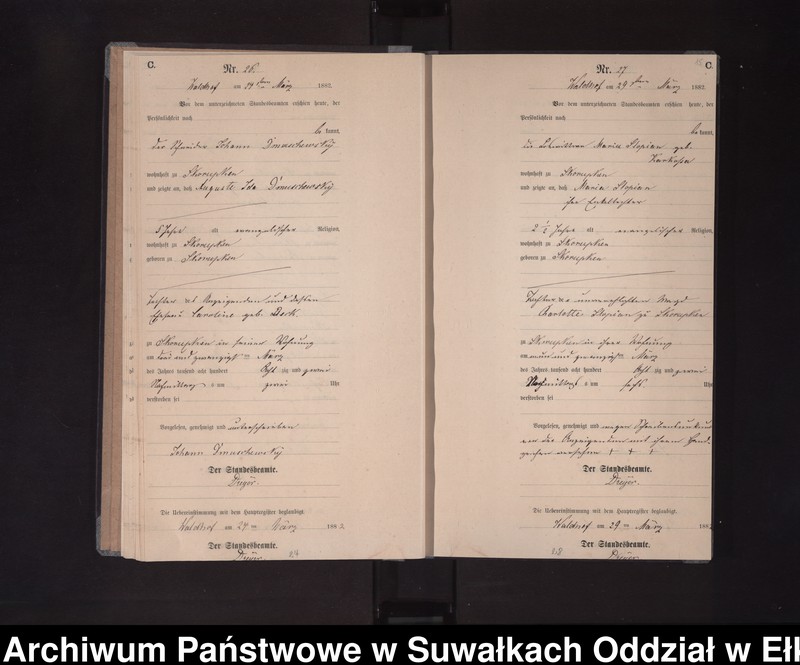 C.
Nr. 26.
Waldhof am 24 ten März 1882.
Vor dem unterzeichneten Standesbeamten erschien heute, der
Persönlichkeit nach
be kannt,
der Schneider Johann Dmuschewsky
wohnhaft zu Skomentzken
und zeigte an, daß Auguste Ida Dmuschewsky
5 Jahr alt evangelischer Religion,
wohnhaft zu
geboren zu
Tochter des Anzeigenden und dessen
Ehefrau Caroline geb. Bock
zu in seiner Wohnung
am drei und zwanzigsten März
des Jahres tausend acht hundert acht zig und zwei
Nachmittags um zwei Uhr
verstorben sei
Vorgelesen, genehmigt und unterschrieben
Johann Dmuschewsky
Der Standesbeamte.
Dreyer.
Die Uebereinstimmung mit dem Hauptregister beglaubigt.
Waldhof am 24 ten März 1882.
Der Standesbeamte.
Dreyer
C.
Nr. 27
Waldhof am 29 ten März 1882
Vor dem unterzeichneten Standesbeamten erschien heute, der
Persönlichkeit nach
be kannt,
die Maria Stopian geb.
wohnhaft zu
und zeigte an, daß Maria Stopian
ihre Enkeltochter
2 1/2 Jahr alt evangelischer Religion,
wohnhaft zu
geboren zu
Tochter der unverehelichten Magd
Charlotte Stopian zu
zu in ihrer Wohnung
am März
des Jahres tausend acht hundert acht zig und zwei
Nachmittags um sechs Uhr
verstorben sei
Vorgelesen, genehmigt und wegen
von der Anzeigenden mit ihrem Hand-
zeichen versehen + + +
Der Standesbeamte.
Dreyer.
Die Uebereinstimmung mit dem Hauptregister beglaubigt.
Waldhof am 29 ten März 188
Der Standesbeamte.
Dreyer
Archiwum Państwowe w Suwałkach Oddział w Ełk